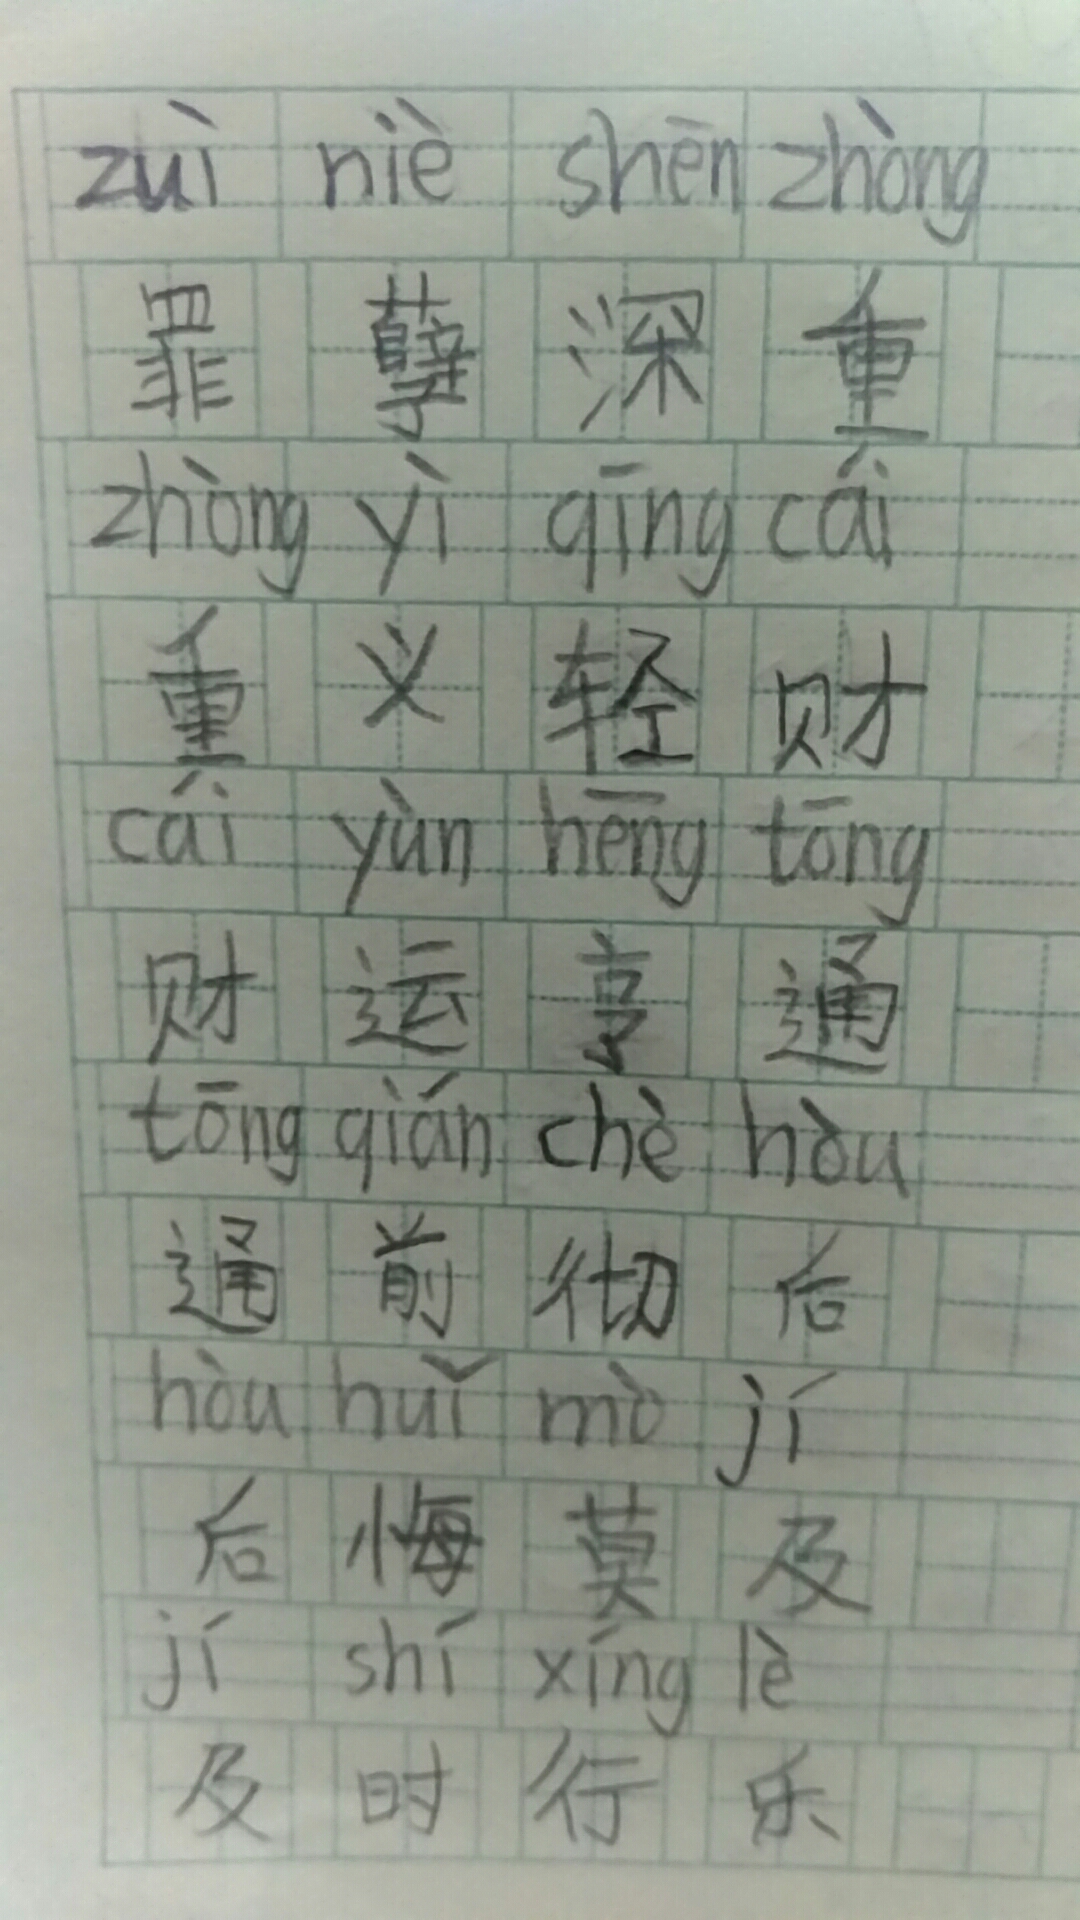 zuì niè shēn zhòng
罪孽深重
zhòng yì qīng cái
重义轻财
cái yùn hēng tōng
财运亨通
tōng qián chè hòu
通前彻后
hòu huǐ mò jí
后悔莫及
jí shí xíng lè
及时行乐